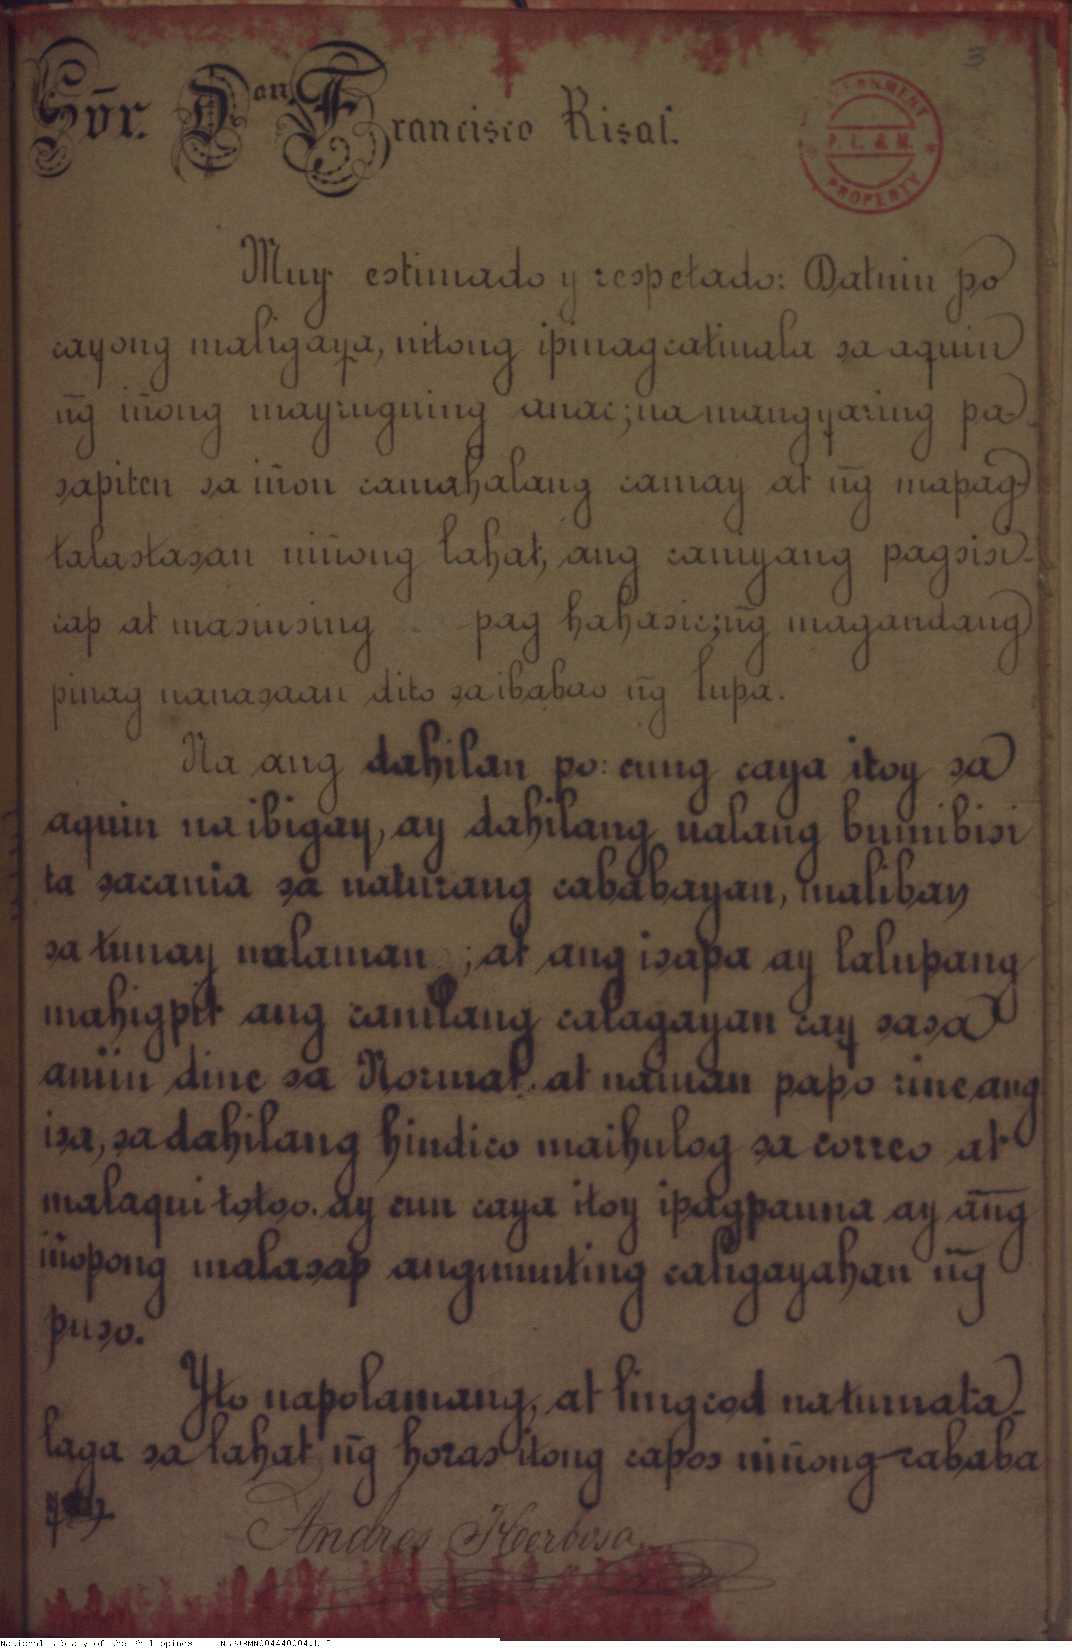 3
Sōr. Don Francisco Risal.
GOVERNMENT
P. L. & M.
PROPERTY
Muy estimado y respetado: Datnin po
cayong maligaya, nitong ipinagcatinala sa aquin
n̄g in̄ong mayrugning anac; na mangyaring pa-
sapiten sa in̄on camahalang camay at n̄g mapag-
talastasan nin̄ong lahat, ang caniyang pagsisi-
cap at masinsing pag hahasic; n̄g magandang
pinag nanasaan dito sa ibabao n̄g lupa.
Na ang dahilan po: cung caya itoy sa
aquin na ibigay, ay dahilang ualang bumibisi
ta sacania sa naturang cababayan, maliban
sa tunay malaman ; at ang isapa ay lalupang
mahigpit ang canilang calagayan cay sasa
amin dine sa Normal. at naman papo rine ang
isa, sa dahilang hindico maihulog sa correo at
malaqui totoo. ay cun caya itoy ipagpauna ay an̄g
in̄opong malasap angmunting caligayahan n̄g
puso.
Yto napolamang, at lingcod natumata-
laga sa lahat n̄g horas itong capos nin̄ong cababa
yan
Andres Herbosa
National Library of the Philippines